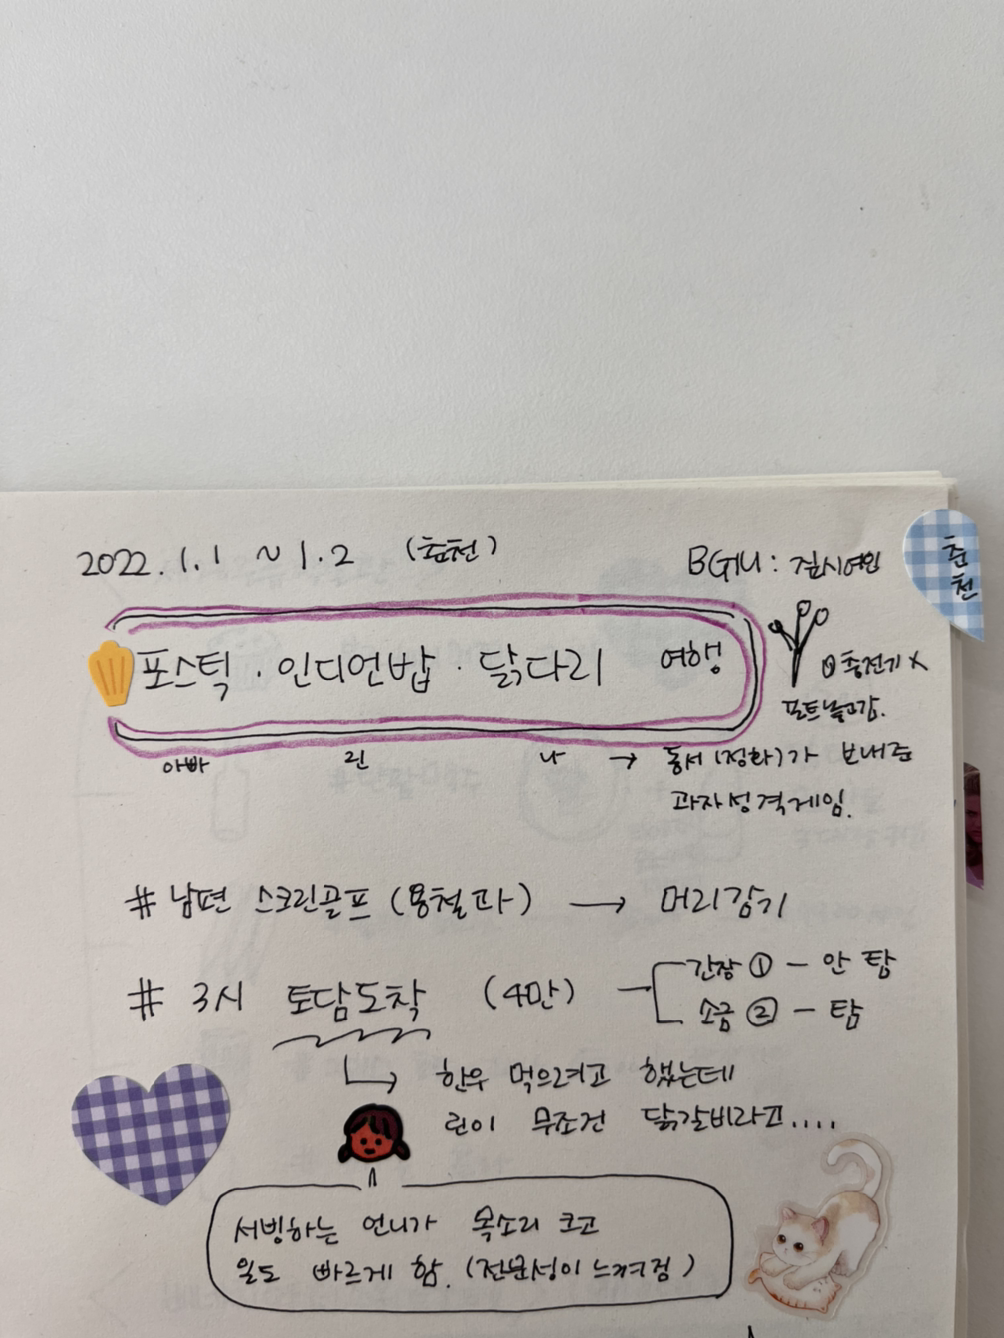 2022.1.1 ~ 1.2 (춘천)
BGM : 검시여인
춘천
포스틱 · 인디언밥 · 닭다리 여행
충전기 X
놓고감.
아빠 린 나 → 동서 (정화)가 보내준
과자성격게임.
# 남편 스크린골프 (용철과) → 머리감기
# 3시 토담도착 (4만)
간장 ① - 안 탐
소금 ② - 탐
한우 먹으려고 했는데
린이 무조건 닭갈비라고....
서빙하는 언니가 목소리 크고
일도 빠르게 함. (전문성이 느껴짐)